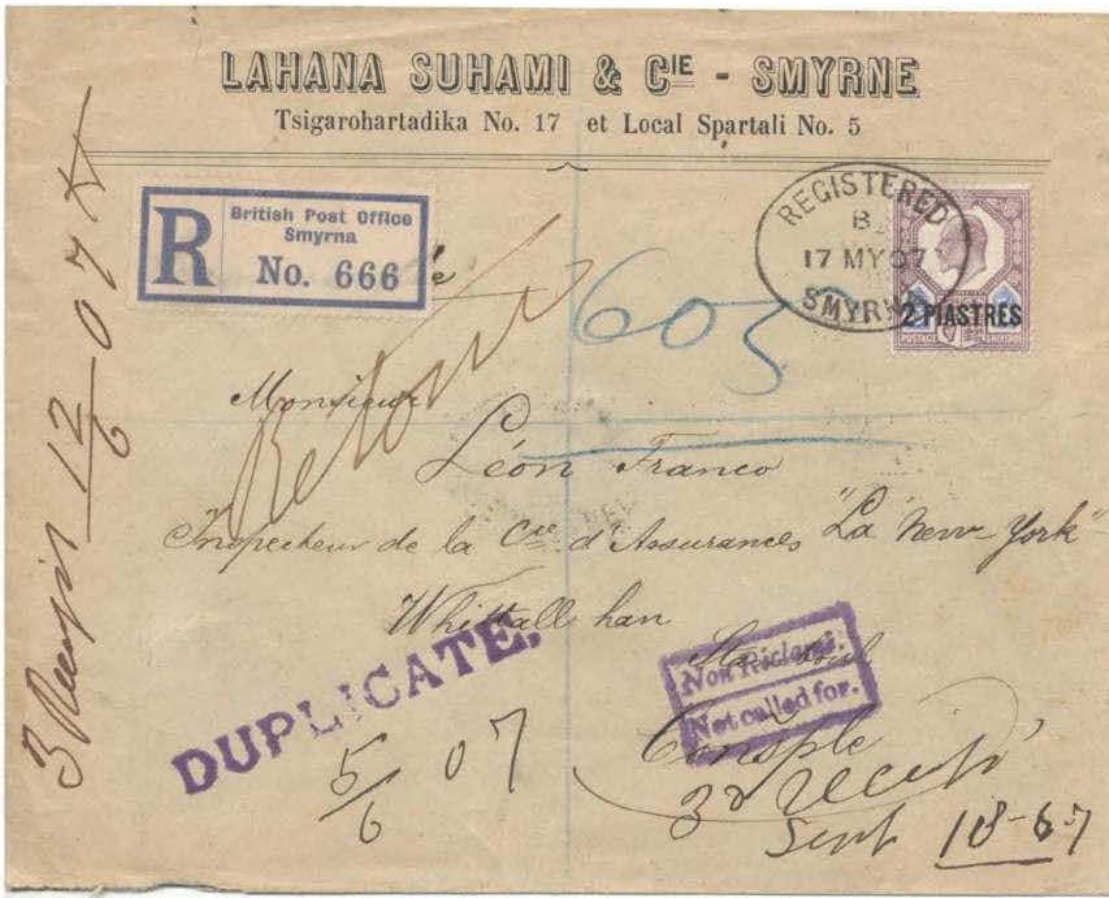 LAHANA SUHAMI & CIE - SMYRNE
Tsigarohartadika No. 17 et Local Spartali No. 5
R
British Post Office
Smyrna
No. 666
é
REGISTERED
B
17 MY 07
SMYRNA
2 PIASTRES
POSTAGE
603
Retour
Monsieur
Léon Franco
Inspecteur de la Cie d'Assurances "La New York"
Whittall han
Stamboul
Consple
DUPLICATE.
Non Réclamé.
Not called for.
5/6 07
3d receipt
Sent 18-6-7
3 Receipt 12/6 07